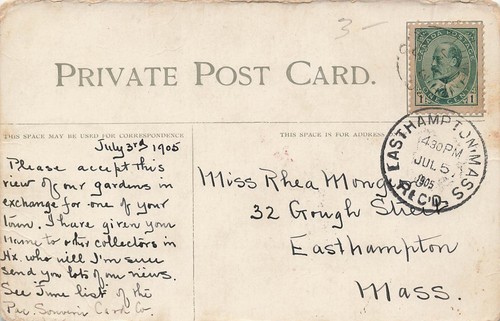 3-
CANADA POSTAGE
1 ONE CENT 1
PRIVATE POST CARD.
THIS SPACE MAY BE USED FOR CORRESPONDENCE
THIS SPACE IS FOR ADDRESS
EASTHAMPTON, MASS.
4:30 PM
JUL 5
1905
REC'D.
July 3rd 1905
Please accept this
view of our gardens in
exchange for one of your
town. I have given your
name to other collectors in
Hx. who will I'm sure
send you lots of our news.
See June list of the
Pac. Souvenir Card Co.
Miss Rhea Monge
32 Gough Street
Easthampton
Mass.